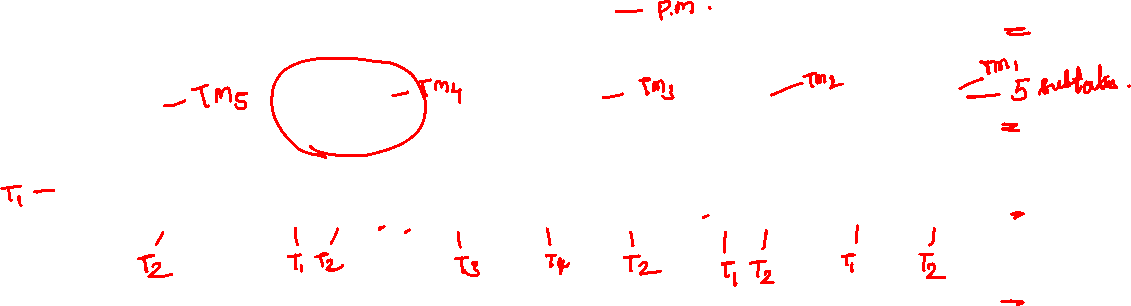 P.M.
TM5 TM4 TM3 TM2 TM1
5 subtasks.
T1
T2 T1 T2 T3 T4 T2 T1 T2 T1 T2